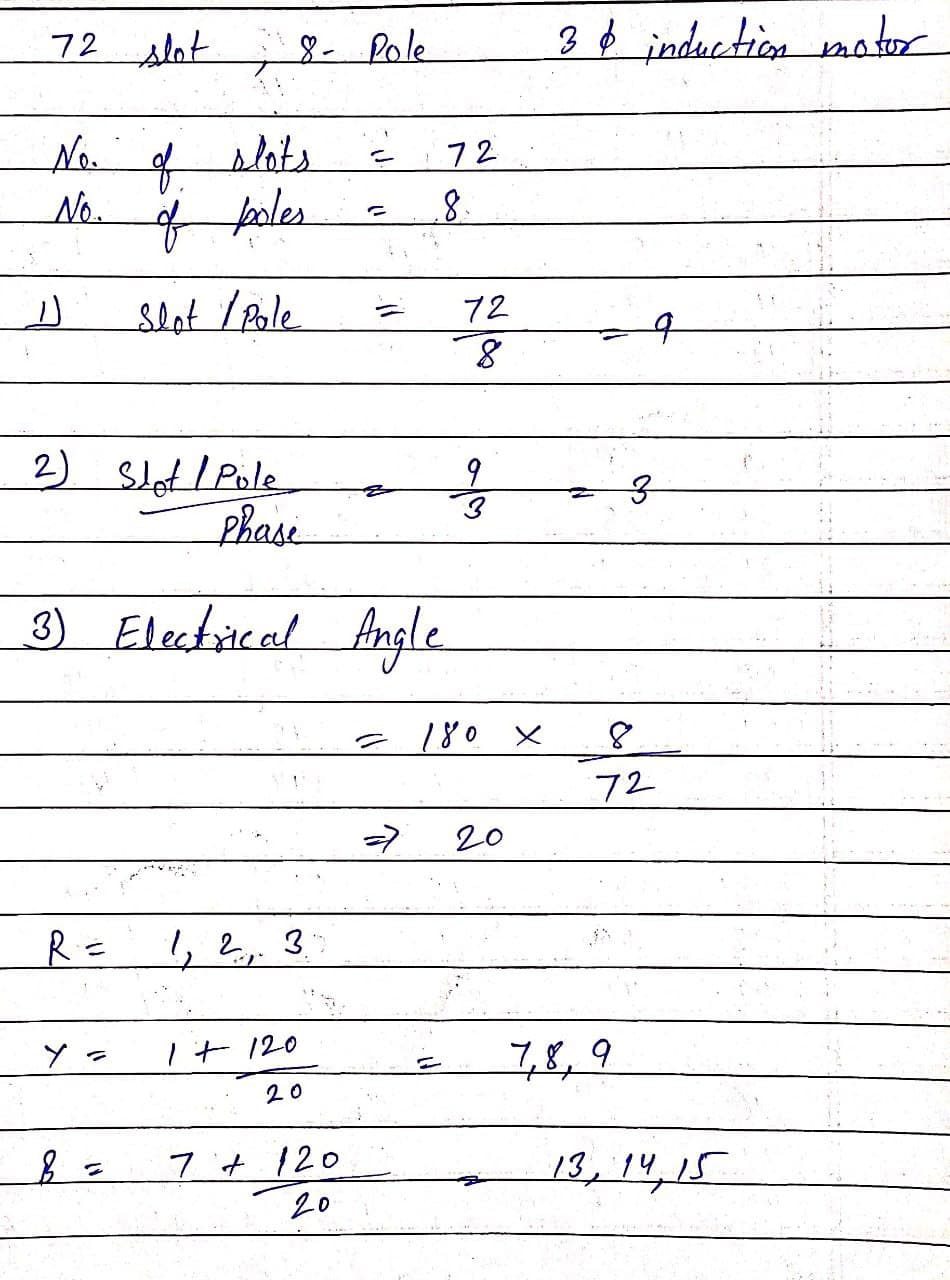 72 slot , 8- Pole 3 ϕ induction motor
No. of slots = 72
No. of poles = 8
1) Slot / Pole = 72/8 = 9
2) Slot / Pole / Phase = 9/3 = 3
3) Electrical Angle
= 180 × 8/72
⇒ 20
R = 1, 2, 3
Y = 1 + 120/20 = 7, 8, 9
B = 7 + 120/20 = 13, 14, 15